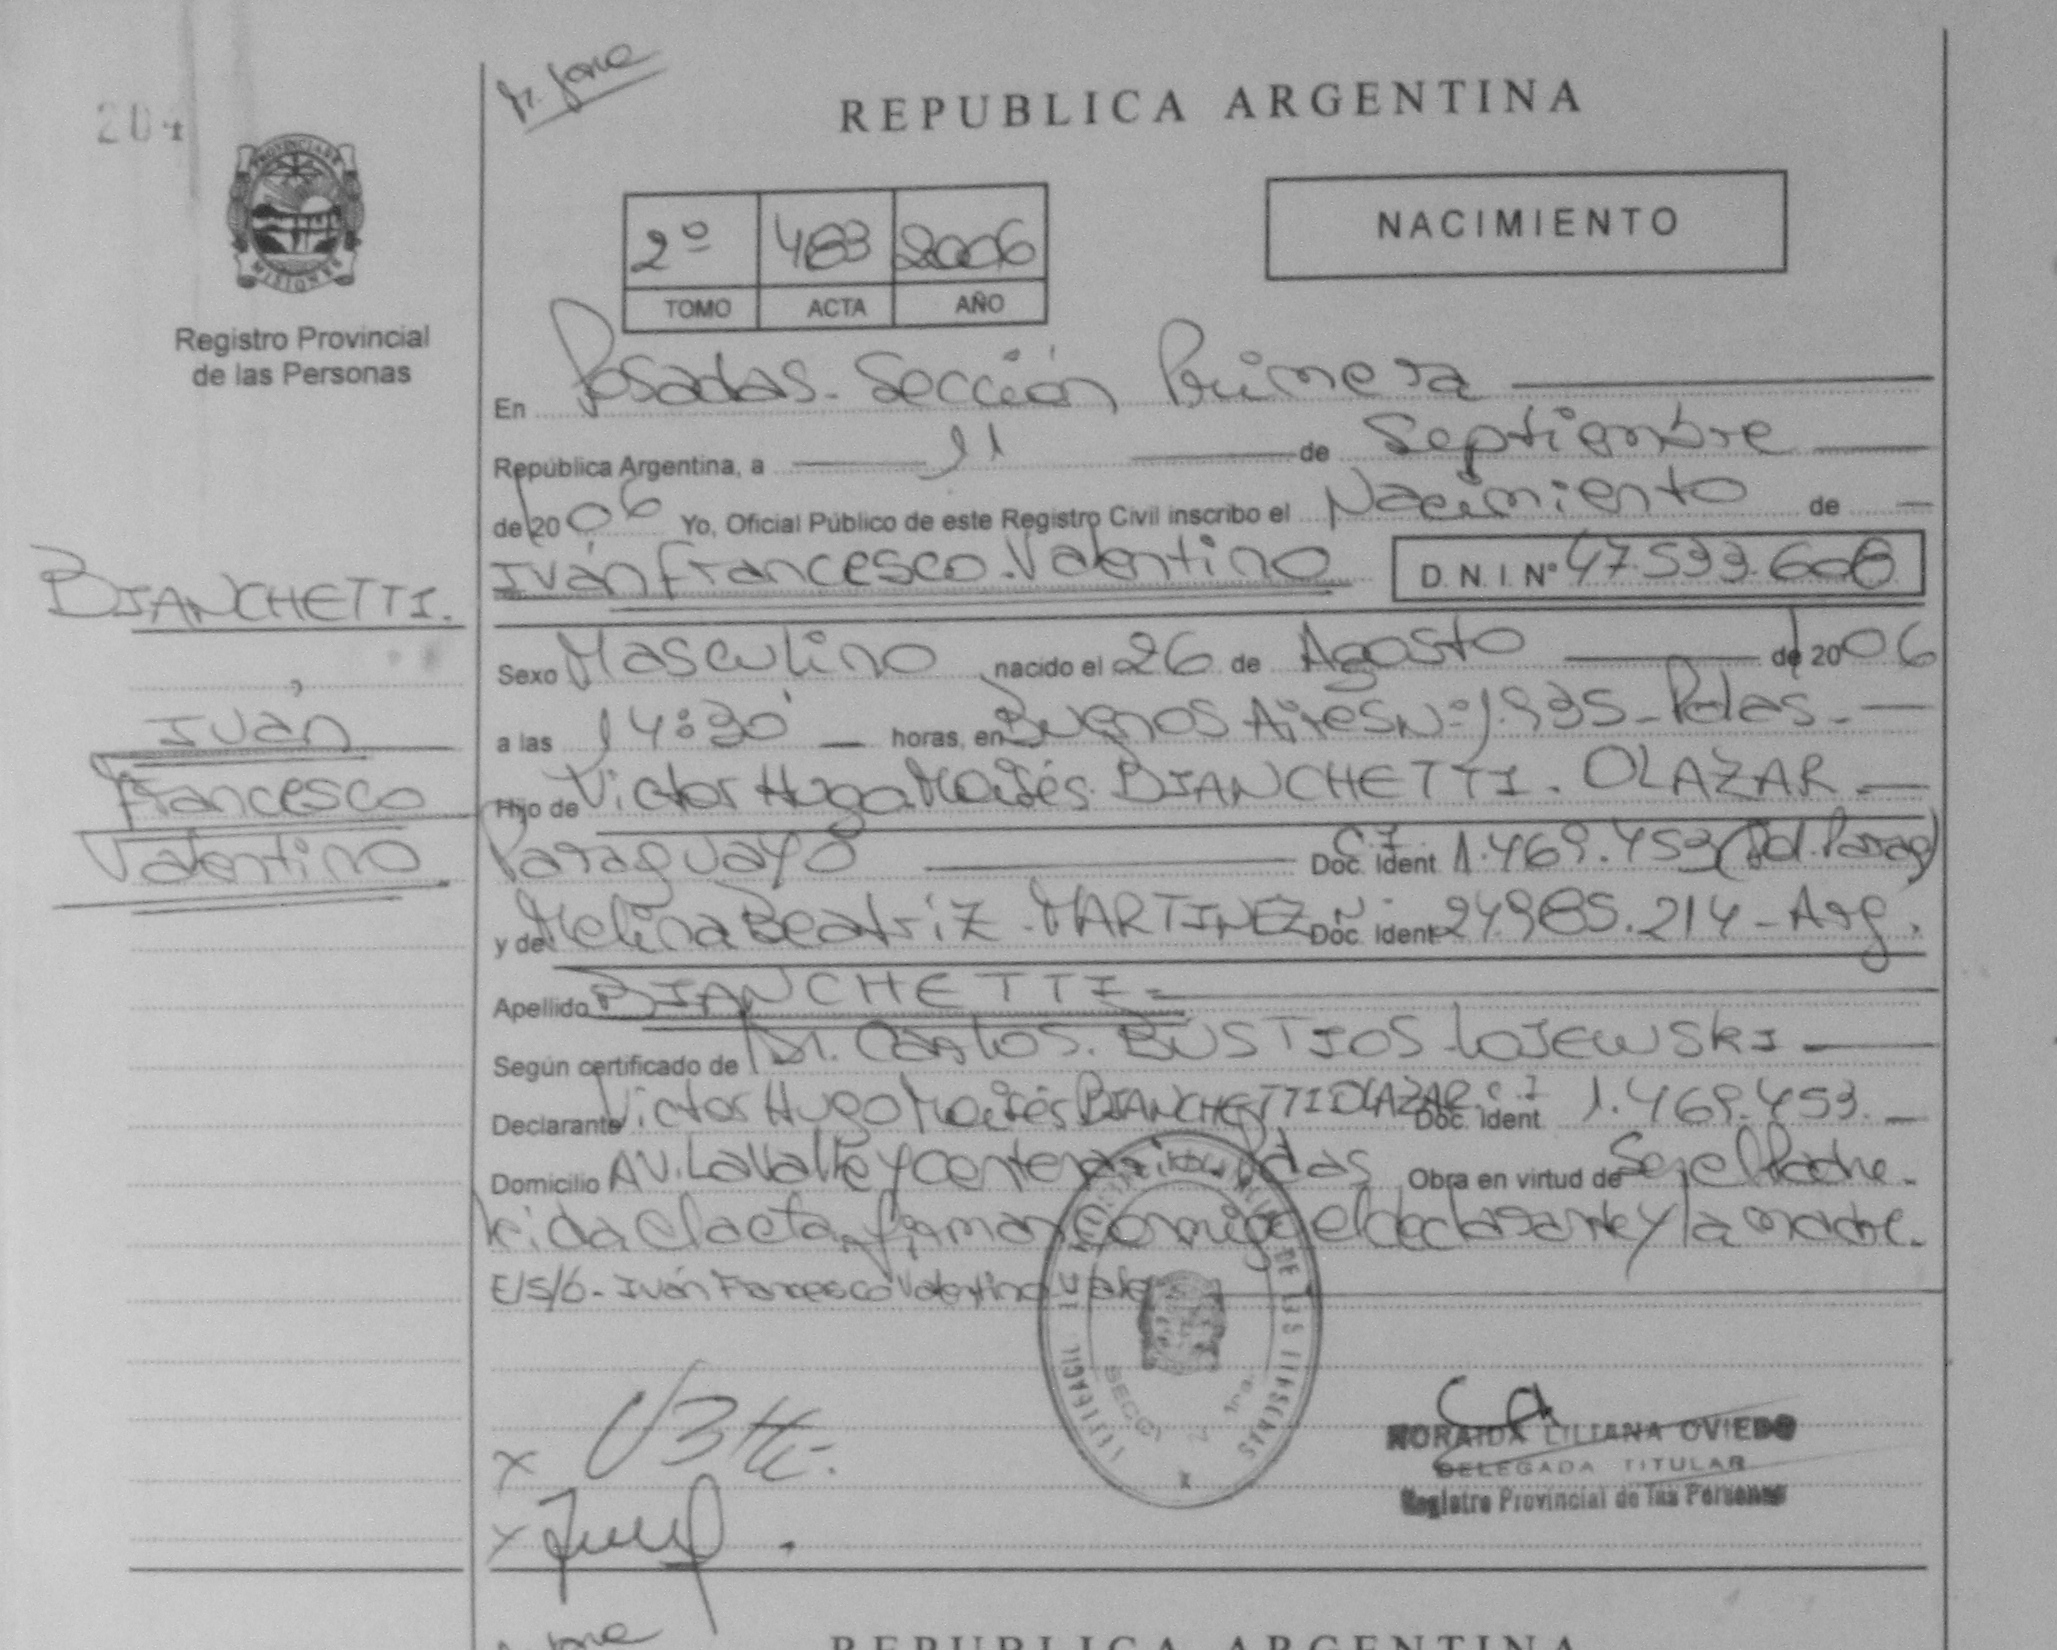 204
REPUBLICA ARGENTINA
PROVINCIA DE
MISIONES
Registro Provincial
de las Personas
2º 483 2006
TOMO ACTA AÑO
NACIMIENTO
En Posadas. Sección Primera
República Argentina, a 11 de Septiembre
de 2006 Yo, Oficial Público de este Registro Civil inscribo el Nacimiento de
Iván Francesco Valentino D.N.I. Nº 47.533.608
BIANCHETTI.
,
Iván
Francesco
Valentino
Sexo Masculino nacido el 26 de Agosto de 2006
a las 14:30' horas, en Buenos Aires Nº 1.935 - Pdas.
Hijo de Victor Hugo Moisés BIANCHETTI. OLAZAR
Paraguayo C.I. Doc. Ident 1.469.453 (Pol. Parag)
y de Melina Beatriz MARTINEZ Doc. Ident 24.985.214 - Arg.
Apellido BIANCHETTI
Según certificado de Dr. Carlos BUSTIOS LOJEWSKI
Declarante Victor Hugo Moisés BIANCHETTI OLAZAR C.I. Doc. Ident 1.469.453.
Domicilio AV. Lavalle y centenario Pdas Obra en virtud de Ser el Padre.
Leida el acta, firman conmigo el declarante y la madre.
E/S/b - Iván Francesco Valentino Vale
SECCI 1ra.
NORAIDA LILIANA OVIEDO
DELEGADA TITULAR
Registro Provincial de las Personas
REPUBLICA ARGENTINA